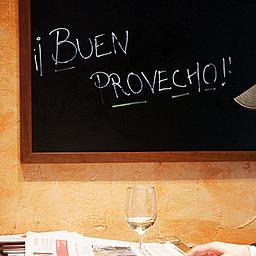 ¡¡BUEN
PROVECHO!!